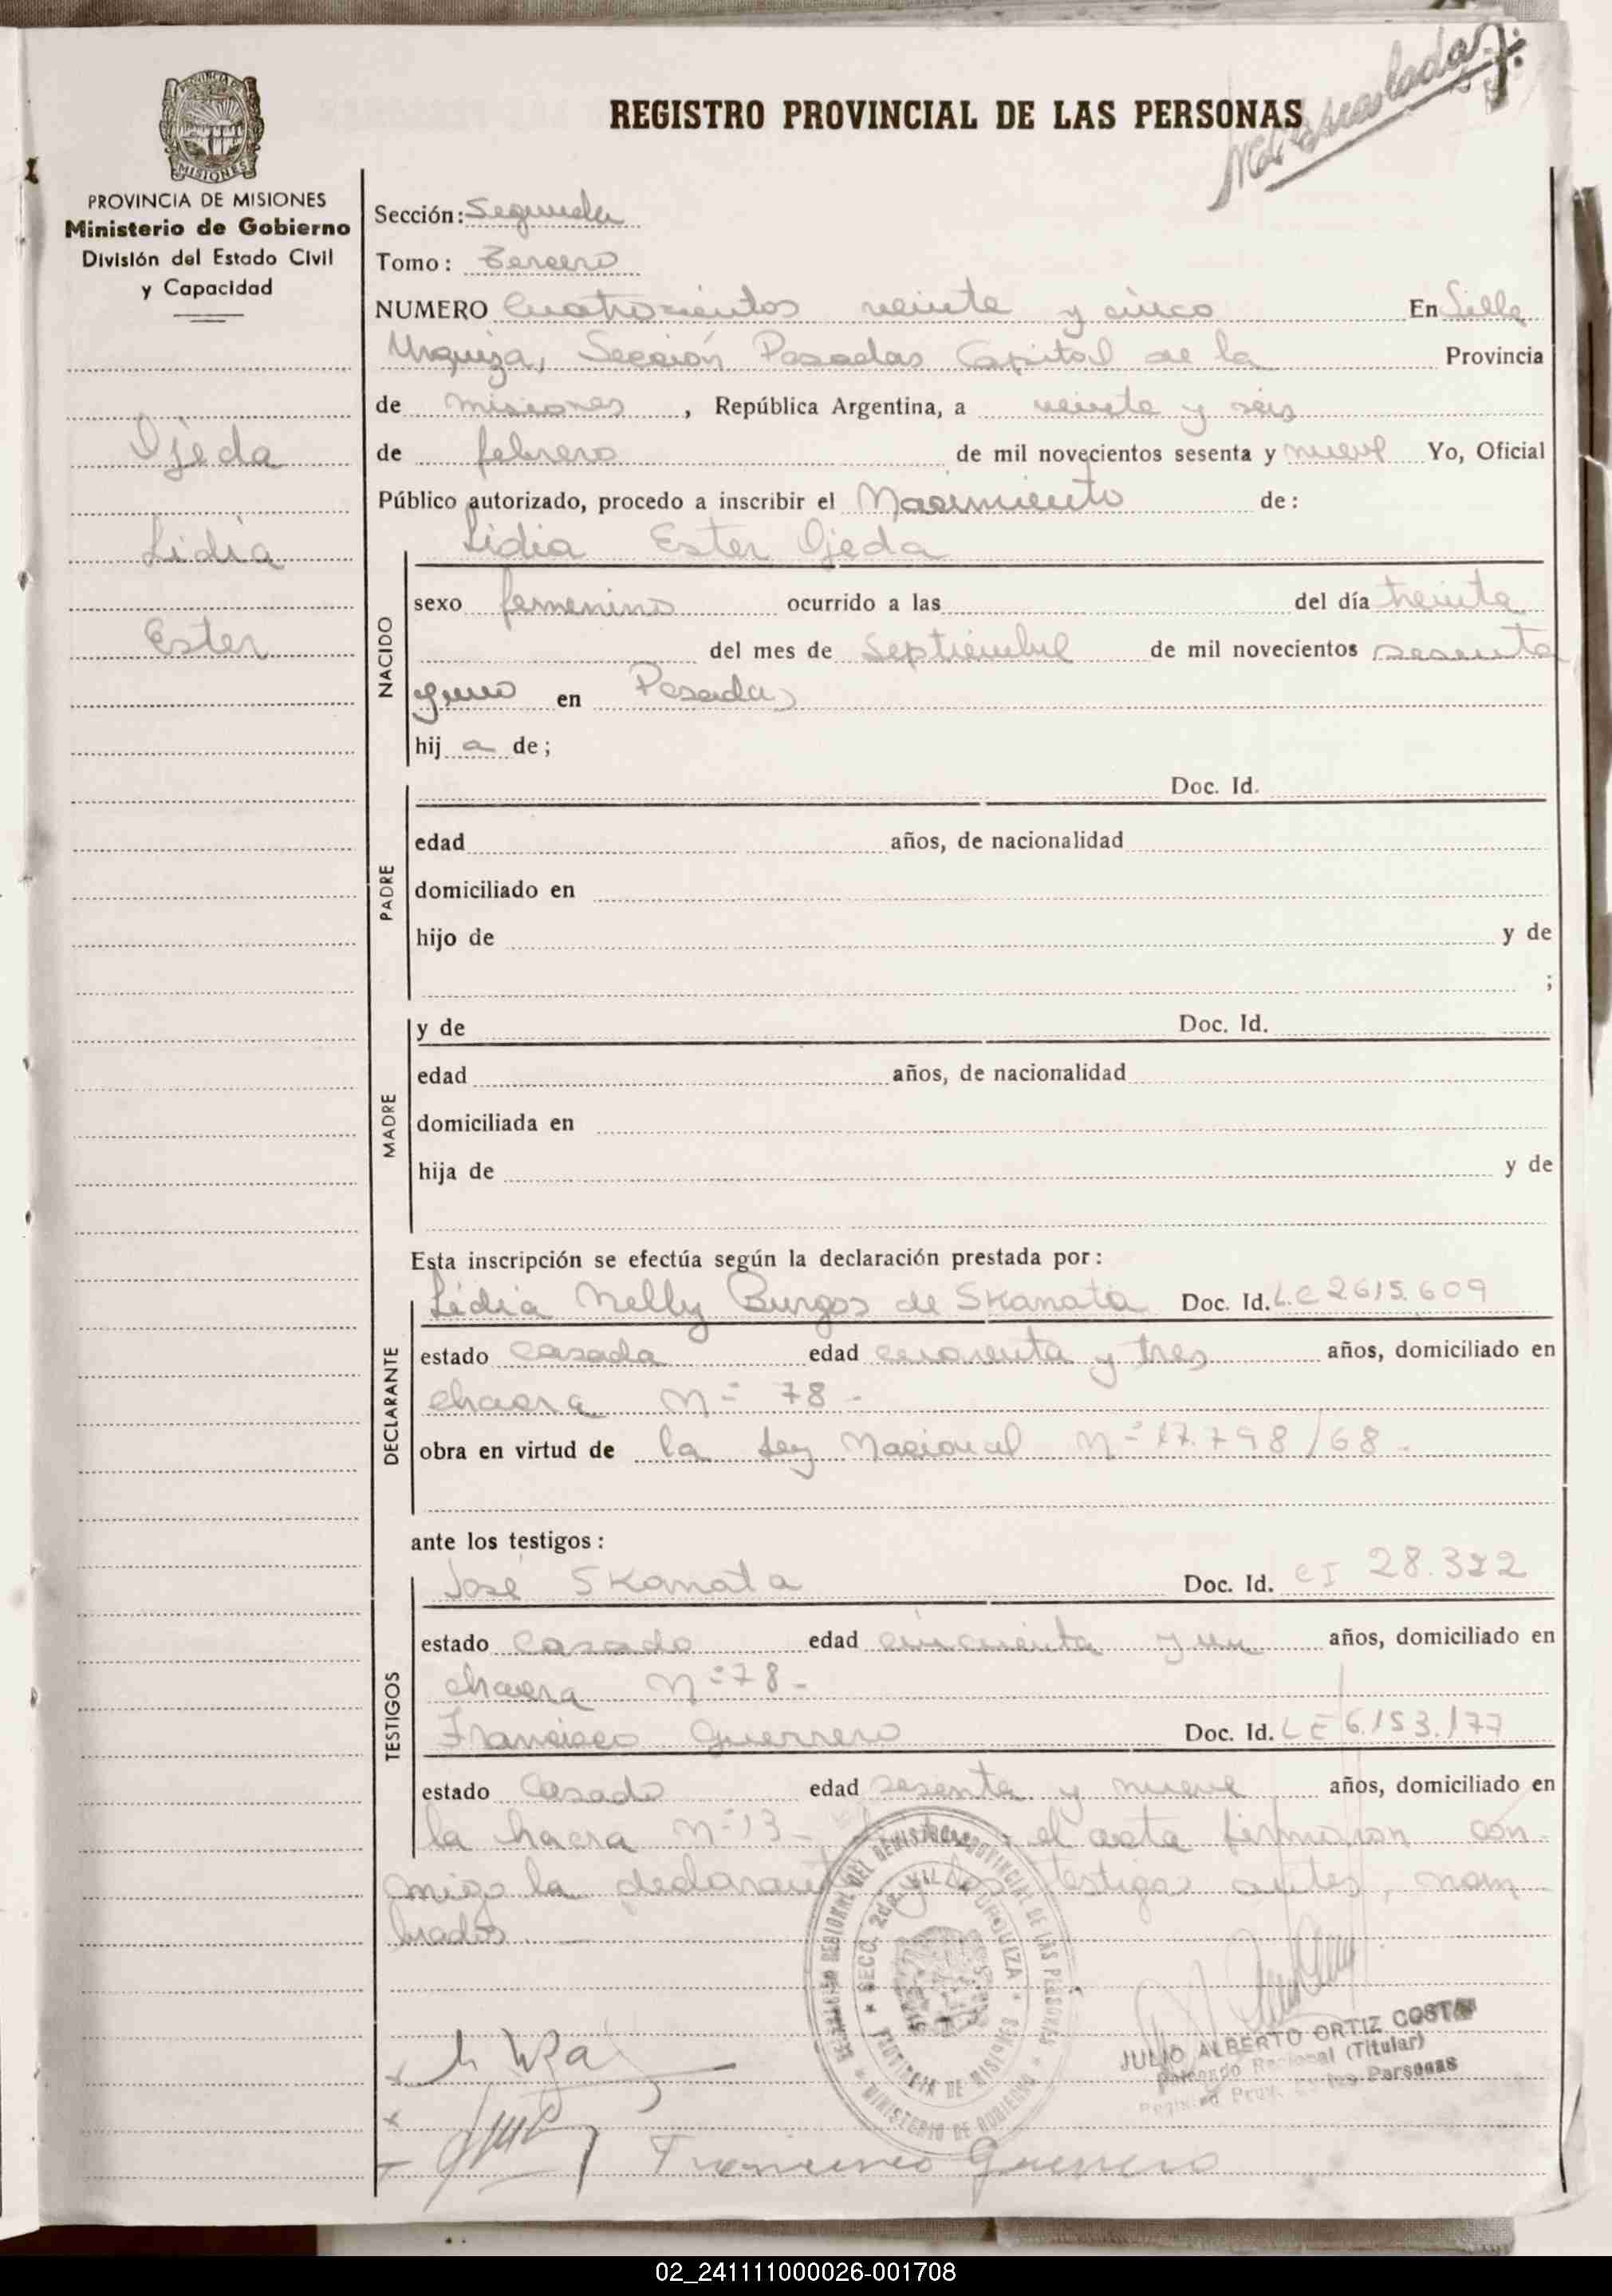 REGISTRO PROVINCIAL DE LAS PERSONAS
MISIONES
PROVINCIA DE MISIONES
Ministerio de Gobierno
División del Estado Civil
y Capacidad
Ojeda
Lidia
Ester
Sección: Segunda
Tomo: Tercero
NUMERO Cuatrocientos veinte y cinco En Villa
Urquiza, Sección Posadas Capital de la Provincia
de misiones, República Argentina, a veinte y seis
de febrero de mil novecientos sesenta y nueve Yo, Oficial
Público autorizado, procedo a inscribir el Nacimiento de:
Lidia Ester Ojeda
NACIDO
sexo femenino ocurrido a las del día treinta
del mes de Septiembre de mil novecientos sesenta
y uno en Posadas
hij a de;
PADRE
Doc. Id.
edad años, de nacionalidad
domiciliado en
hijo de y de
;
MADRE
y de Doc. Id.
edad años, de nacionalidad
domiciliada en
hija de y de
Esta inscripción se efectúa según la declaración prestada por:
DECLARANTE
Lidia Nelly Burgos de Skanata Doc. Id. L.C 2615.609
estado casada edad cuarenta y tres años, domiciliado en
chacra Nº 78 -
obra en virtud de la Ley Nacional Nº 17.798/68 -
ante los testigos:
TESTIGOS
José Skanata Doc. Id. CI 28.322
estado Casado edad cincuenta y un años, domiciliado en
chacra Nº 78 -
Francisco Guerrero Doc. Id. LE 6.153.177
estado Casado edad sesenta y nueve años, domiciliado en
la hacra Nº 13 - el acta firmaron con-
migo la declarante y los testigos antes, nom
brados. -
SECC. 2da. VILLA URQUIZA
PROVINCIA DE MISIONES
MINISTERIO DE GOBIERNO
JULIO ALBERTO ORTIZ COSTA
Delegado Regional (Titular)
Registro Prov. de las Personas
Francisco Guerrero
02_241111000026-001708